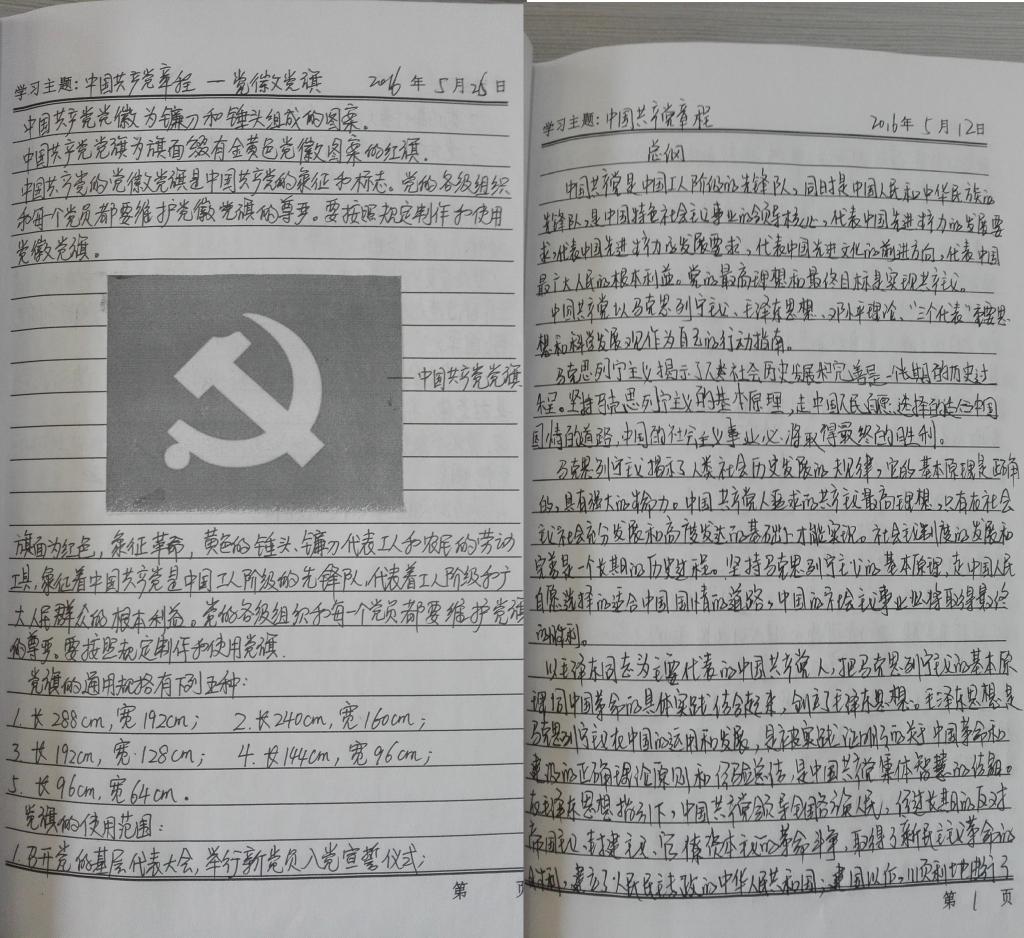 学习主题:中国共产党章程 — 党徽党旗 2016年5月26日
中国共产党党徽为镰刀和锤头组成的图案。
中国共产党党旗为旗面缀有金黄色党徽图案的红旗.
中国共产党的党徽党旗是中国共产党的象征和标志。党的各级组织
和每个党员都要维护党徽党旗的尊严。要按照规定制作和使用
党徽党旗。
—中国共产党党旗
旗面为红色,象征革命,黄色的锤头、镰刀代表工人和农民的劳动
工具,象征着中国共产党是中国工人阶级的先锋队,代表着工人阶级和广
大人民群众的根本利益。党的各级组织和每个党员都要维护党旗
的尊严。要按照规定制作和使用党旗.
党旗的通用规格有下列五种:
1.长288cm,宽192cm; 2.长240cm,宽160cm;
3.长192cm,宽128cm; 4.长144cm,宽96cm;
5.长96cm,宽64cm.
党旗的使用范围:
1.召开党的基层代表大会,举行新党员入党宣誓仪式;
第 页
学习主题:中国共产党章程 2016年5月12日
总纲
中国共产党是中国工人阶级的先锋队,同时是中国人民和中华民族的
先锋队,是中国特色社会主义事业的领导核心,代表中国先进生产力的发展要
求,代表中国先进生产力的发展要求,代表中国先进文化的前进方向,代表中国
最广大人民的根本利益。党的最高理想和最终目标是实现共产主义。
中国共产党以马克思列宁主义、毛泽东思想、邓小平理论、“三个代表”重要思
想和科学发展观作为自己的行动指南。
马克思列宁主义揭示了人类社会历史发展和完善是一个长期的历史过
程。坚持马克思列宁主义的基本原理,走中国人民自愿选择的适合中国
国情的道路,中国的社会主义事业必将取得最终的胜利。
马克思列宁主义揭示了人类社会历史发展的规律,它的基本原理是正确
的,具有强大的生命力。中国共产党人追求的共产主义最高理想,只有在社会
主义社会充分发展和高度发达的基础上才能实现。社会主义制度的发展和
完善是一个长期的历史过程。坚持马克思列宁主义的基本原理,走中国人民
自愿选择的适合中国国情的道路,中国的社会主义事业必将取得最终
的胜利。
以毛泽东同志为主要代表的中国共产党人,把马克思列宁主义的基本原
理同中国革命的具体实践结合起来,创立了毛泽东思想。毛泽东思想是
马克思列宁主义在中国的运用和发展,是被实践证明了的关于中国革命和
建设的正确理论原则和经验总结,是中国共产党集体智慧的结晶。
在毛泽东思想指引下,中国共产党领导全国各族人民,经过长期的反对
帝国主义、封建主义、官僚资本主义的革命斗争,取得了新民主主义革命的
胜利,建立了人民民主专政的中华人民共和国;建国以后,顺利地进行了
第 1 页